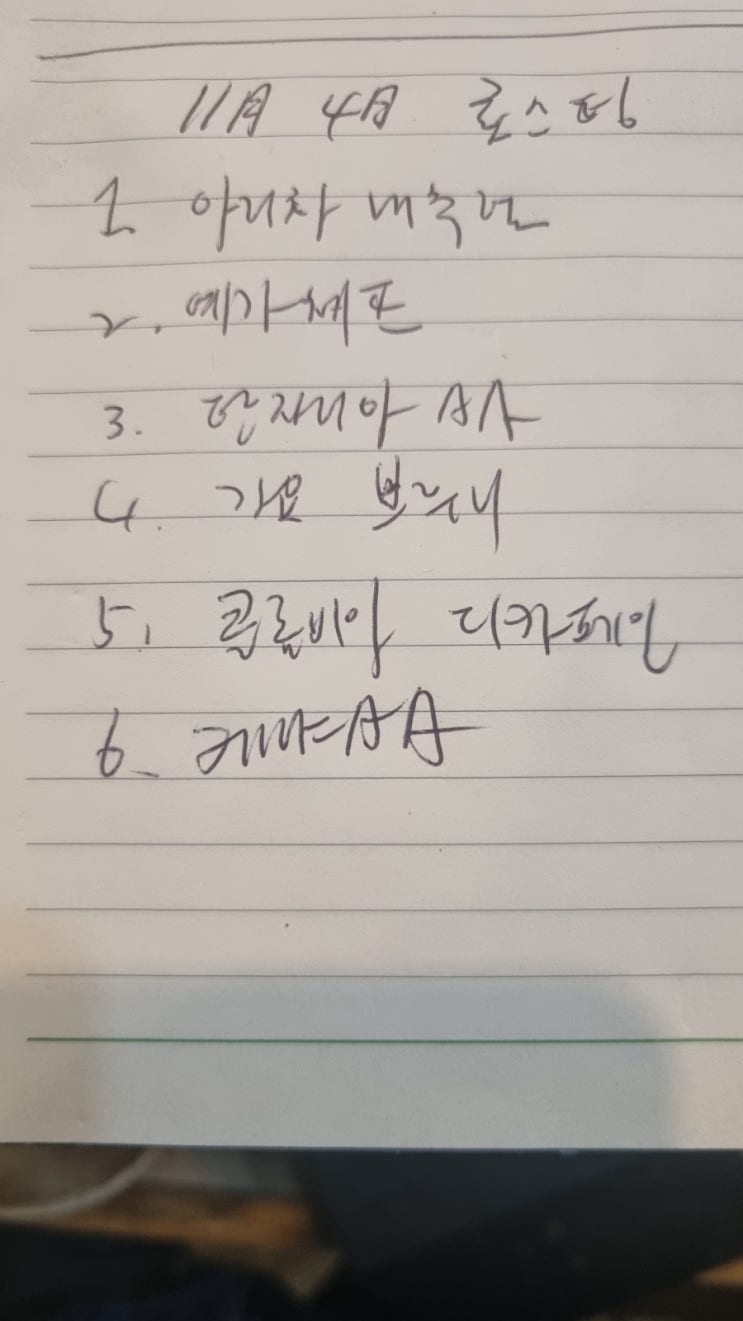 11月 4日 로스팅
1. 아리차 내추럴
2. 예가체프
3. 탄자니아 AA
4. 기요
5. 콜롬비아 디카페인
6. 케냐 AA